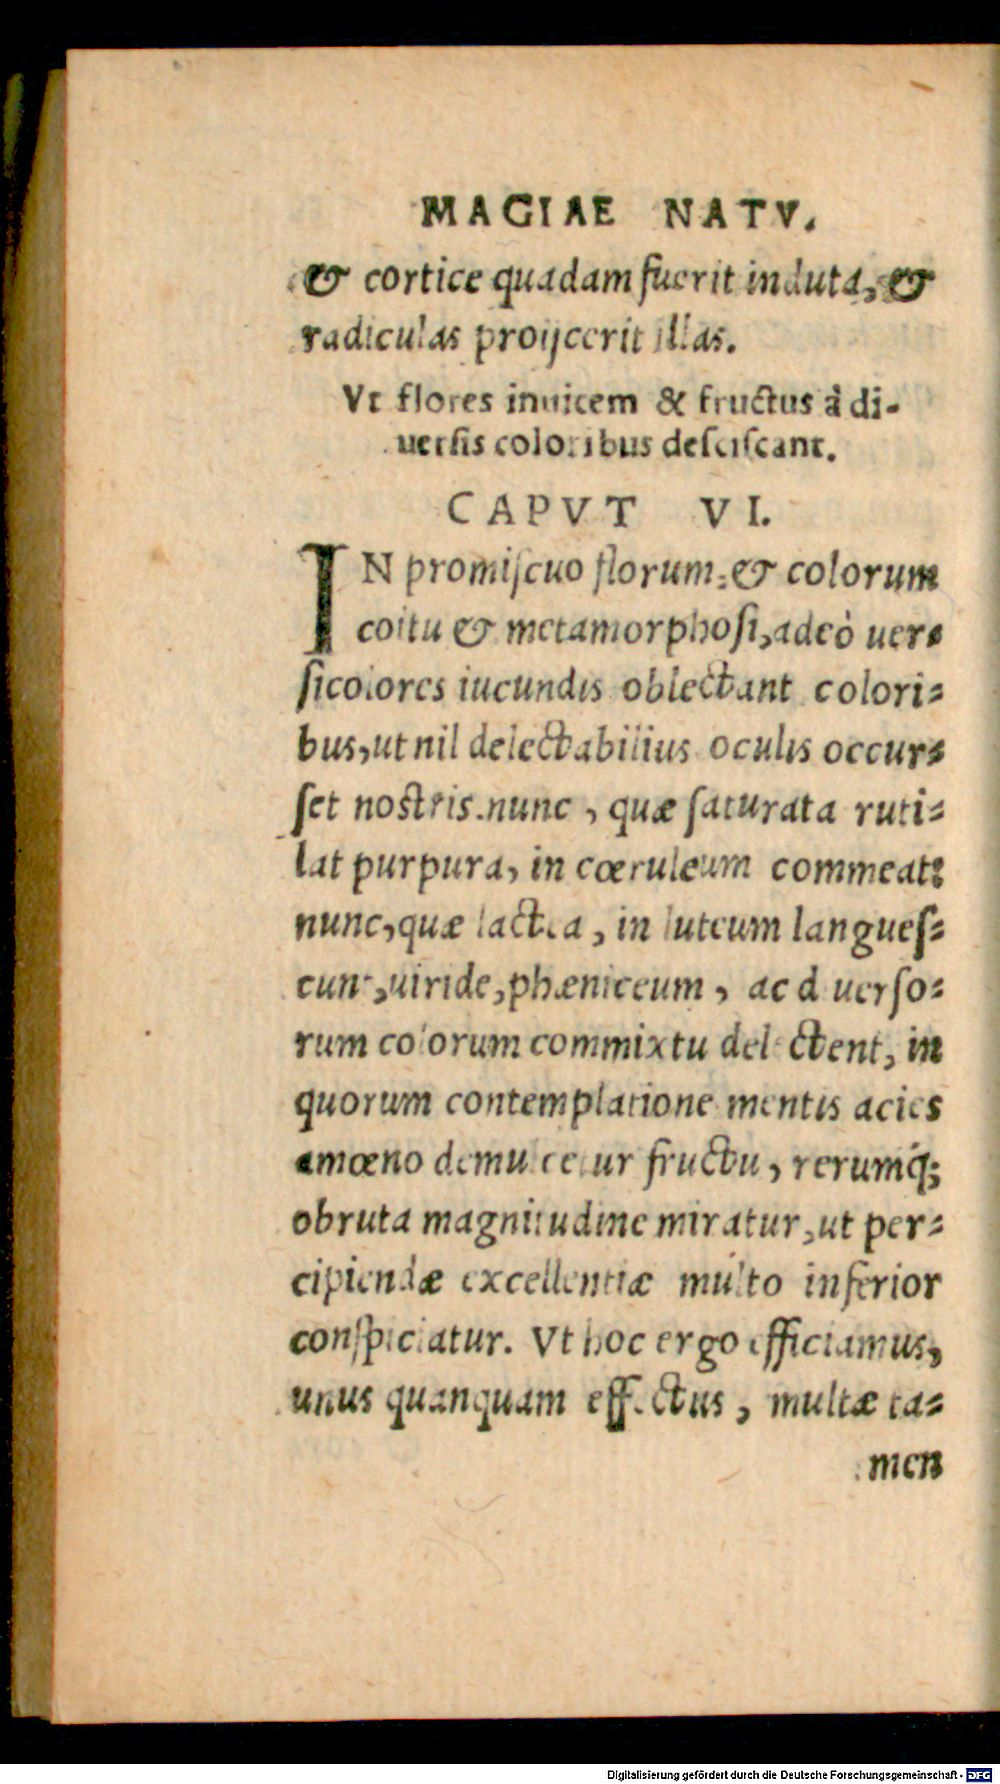 MAGIAE NATV.
& cortice quadam fuerit induta, &
radiculas proijcerit illas.
Vt flores inuicem & fructus à di-
uersis coloribus desciscant.
CAPVT VI.
IN promiscuo florum, & colorum
coitu & metamorphosi, adeò uer-
sicolores iucundis oblectant colori-
bus, ut nil delectabilius oculis occur-
set nostris. nunc, quæ saturata ruti-
lat purpura, in cœruleum commeat:
nunc, quæ lactea, in luteum langues-
cunt, uiride, phæniceum, ac diuerso-
rum colorum commixtu delectent, in
quorum contemplatione mentis acies
amœno demulcetur fructu, rerumq́;
obruta magnitudine miratur, ut per-
cipiendæ excellentiæ multo inferior
conspiciatur. Vt hoc ergo efficiamus,
unus quanquam effectus, multæ ta-
men
Digitalisierung gefördert durch die Deutsche Forschungsgemeinschaft - DFG